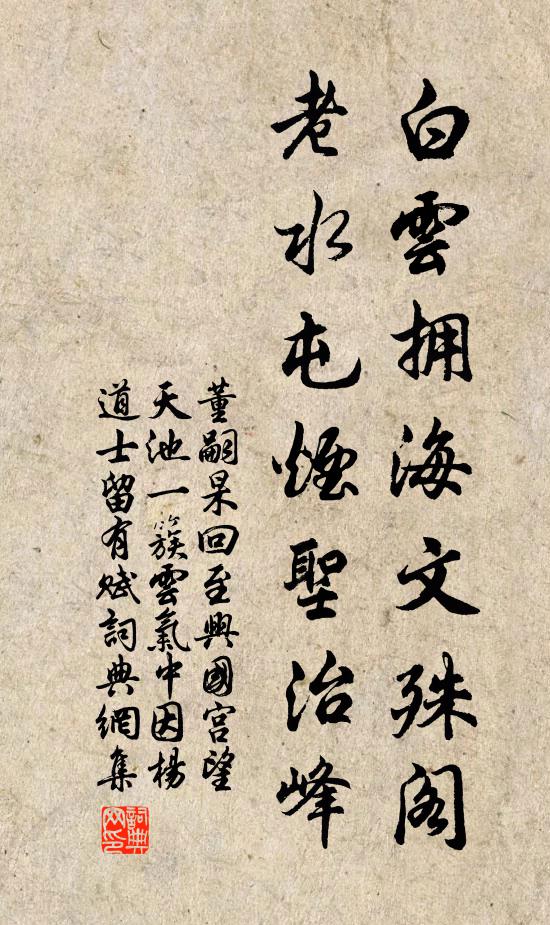 白雲拥海文殊阁
老水屯煙聖治峰
董嗣杲回至興國宫望
天池一簇雲氣中因楊
道士留有赋詞典網集
詞典网印